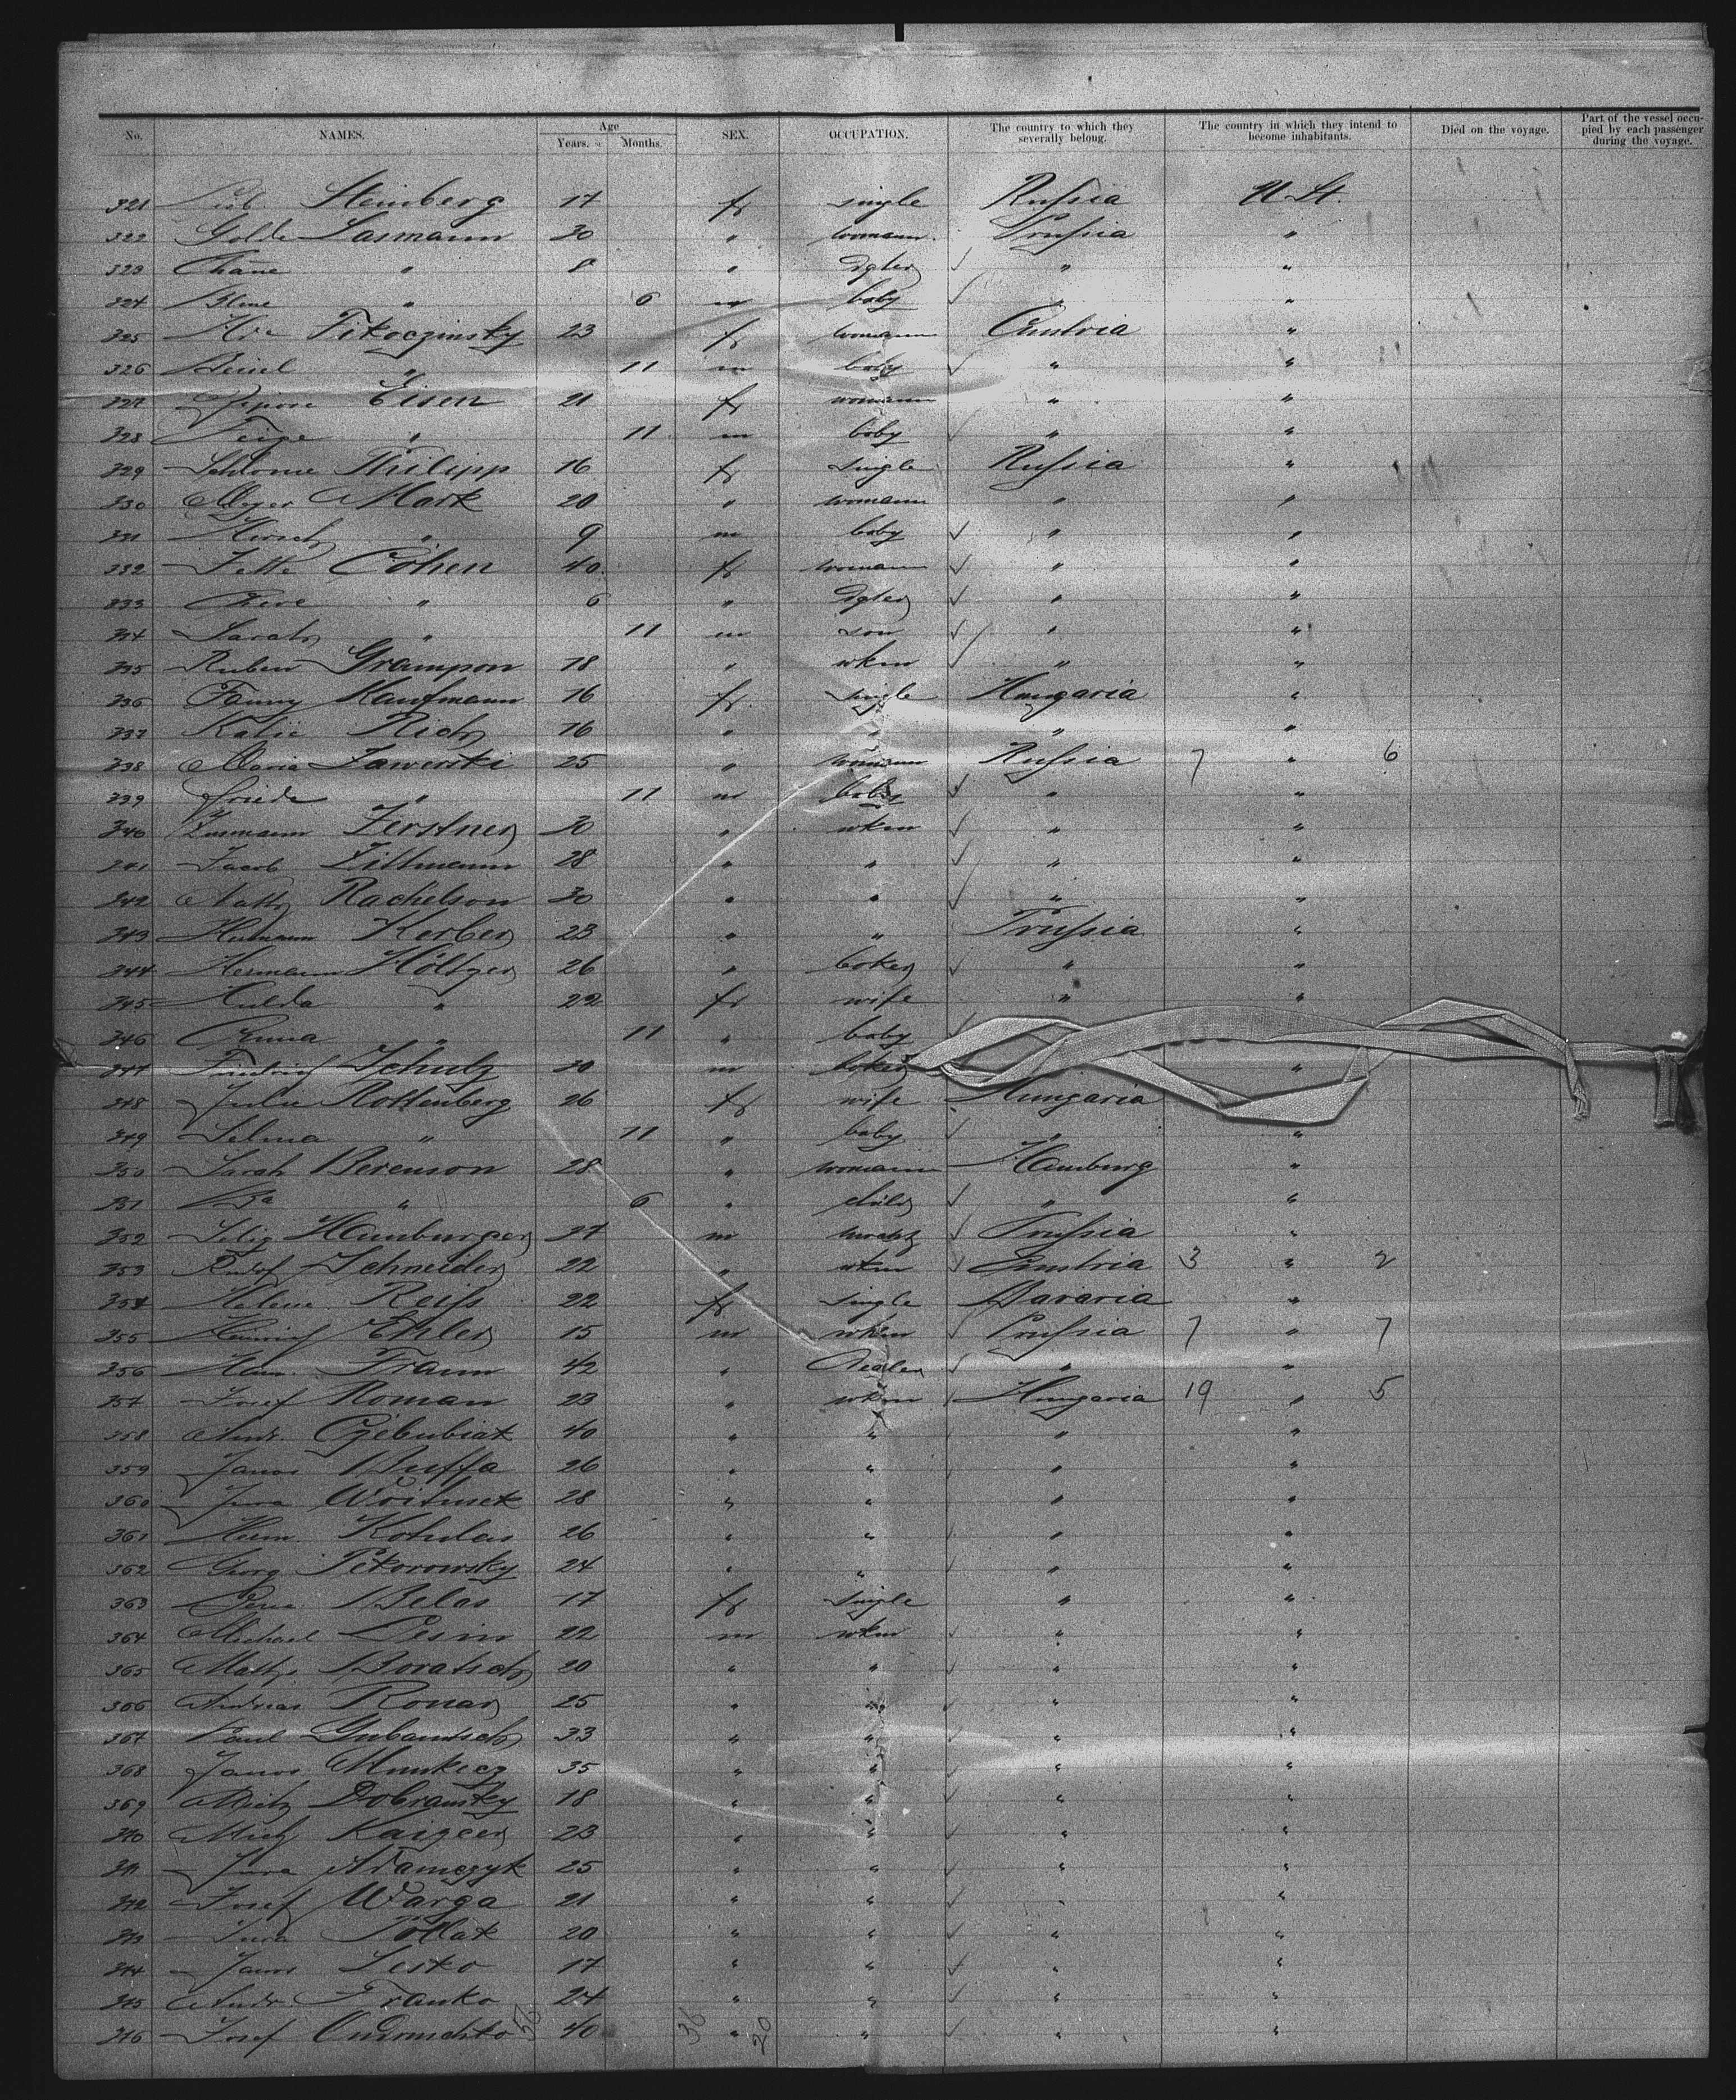 No. NAMES. Age Years. Months. SEX. OCCUPATION. The country to which they severally belong. The country in which they intend to become inhabitants. Died on the voyage. Part of the vessel occupied by each passenger during the voyage.
321 Steinberg 17 f single Russia U. St.
322 Golde Lasmann 30 " womann Prussia "
323 Chane " 8 " dgter " "
324 " 6 m baby " "
325 Tikoczinsky 23 f womann Austria "
326 " 11 m baby " "
327 Eisen 21 f womann " "
328 Feige " 11 m baby " "
329 Philipp 16 f single Russia "
330 Meyer Mark 20 " womann " "
331 Hirsch " 9 m baby " "
332 Jette Cohen 40 f womann " "
333 " 6 " dgter " "
334 Sarah " 11 m son " "
335 Ruben Grampon 18 " wkm " "
336 Fanny Kaufmann 16 f single Hungaria "
337 Katie Rich 16 " " " "
338 Maria Jawerski 25 " womann Russia 7 " 6
339 Friede " 11 m baby " "
340 Zerstner 30 " wkm " "
341 Jacob Zittmann 28 " " " "
342 Rachelson 30 " " " "
343 Kerber 23 " " Prussia "
344 Hermann Höltger 26 " boker " "
345 Hulda " 22 f wife " "
346 Anna " 11 " baby
347 Friedrich Schulz 30 m boker "
348 Julie Rottenberg 26 f wife Hungaria
349 Selma " 11 " baby " "
350 Sarah Berenson 28 " womann Hamburg "
351 " 6 " child " "
352 Selig Hamburger 37 m Prussia "
353 Rudolf Schneider 22 " wkm Austria 3 " 2
354 Helene Reiss 22 f single Bavaria "
355 Heinrich Ehler 15 m wkm Prussia 7 " 7
356 Fraum 42 " Dealer " "
357 Josef Roman 23 " wkm Hungaria 19 " 5
358 Andr. 40 " " " "
359 Janos Buffa 26 " " " "
360 Jura Woitusek 28 " " " "
361 26 " " " "
362 Georg Pikorowsky 24 " " " "
363 Belas 17 f single " "
364 Michael 22 m wkm " "
365 Boratsch 20 " " " "
366 Andreas Ronar 25 " " " "
367 Paul 33 " " " "
368 Janos Munkecz 35 " " " "
369 Dobransky 18 " " " "
370 Mich 23 " " " "
371 Jura Adamczyk 25 " " " "
372 Josef Warga 21 " " "
373 Jura Pollak 20 " " " "
374 Janos Lesko 17 " " " "
375 Andr. Franko 24 " " " "
376 Josef 40 " " " "
56 36 20